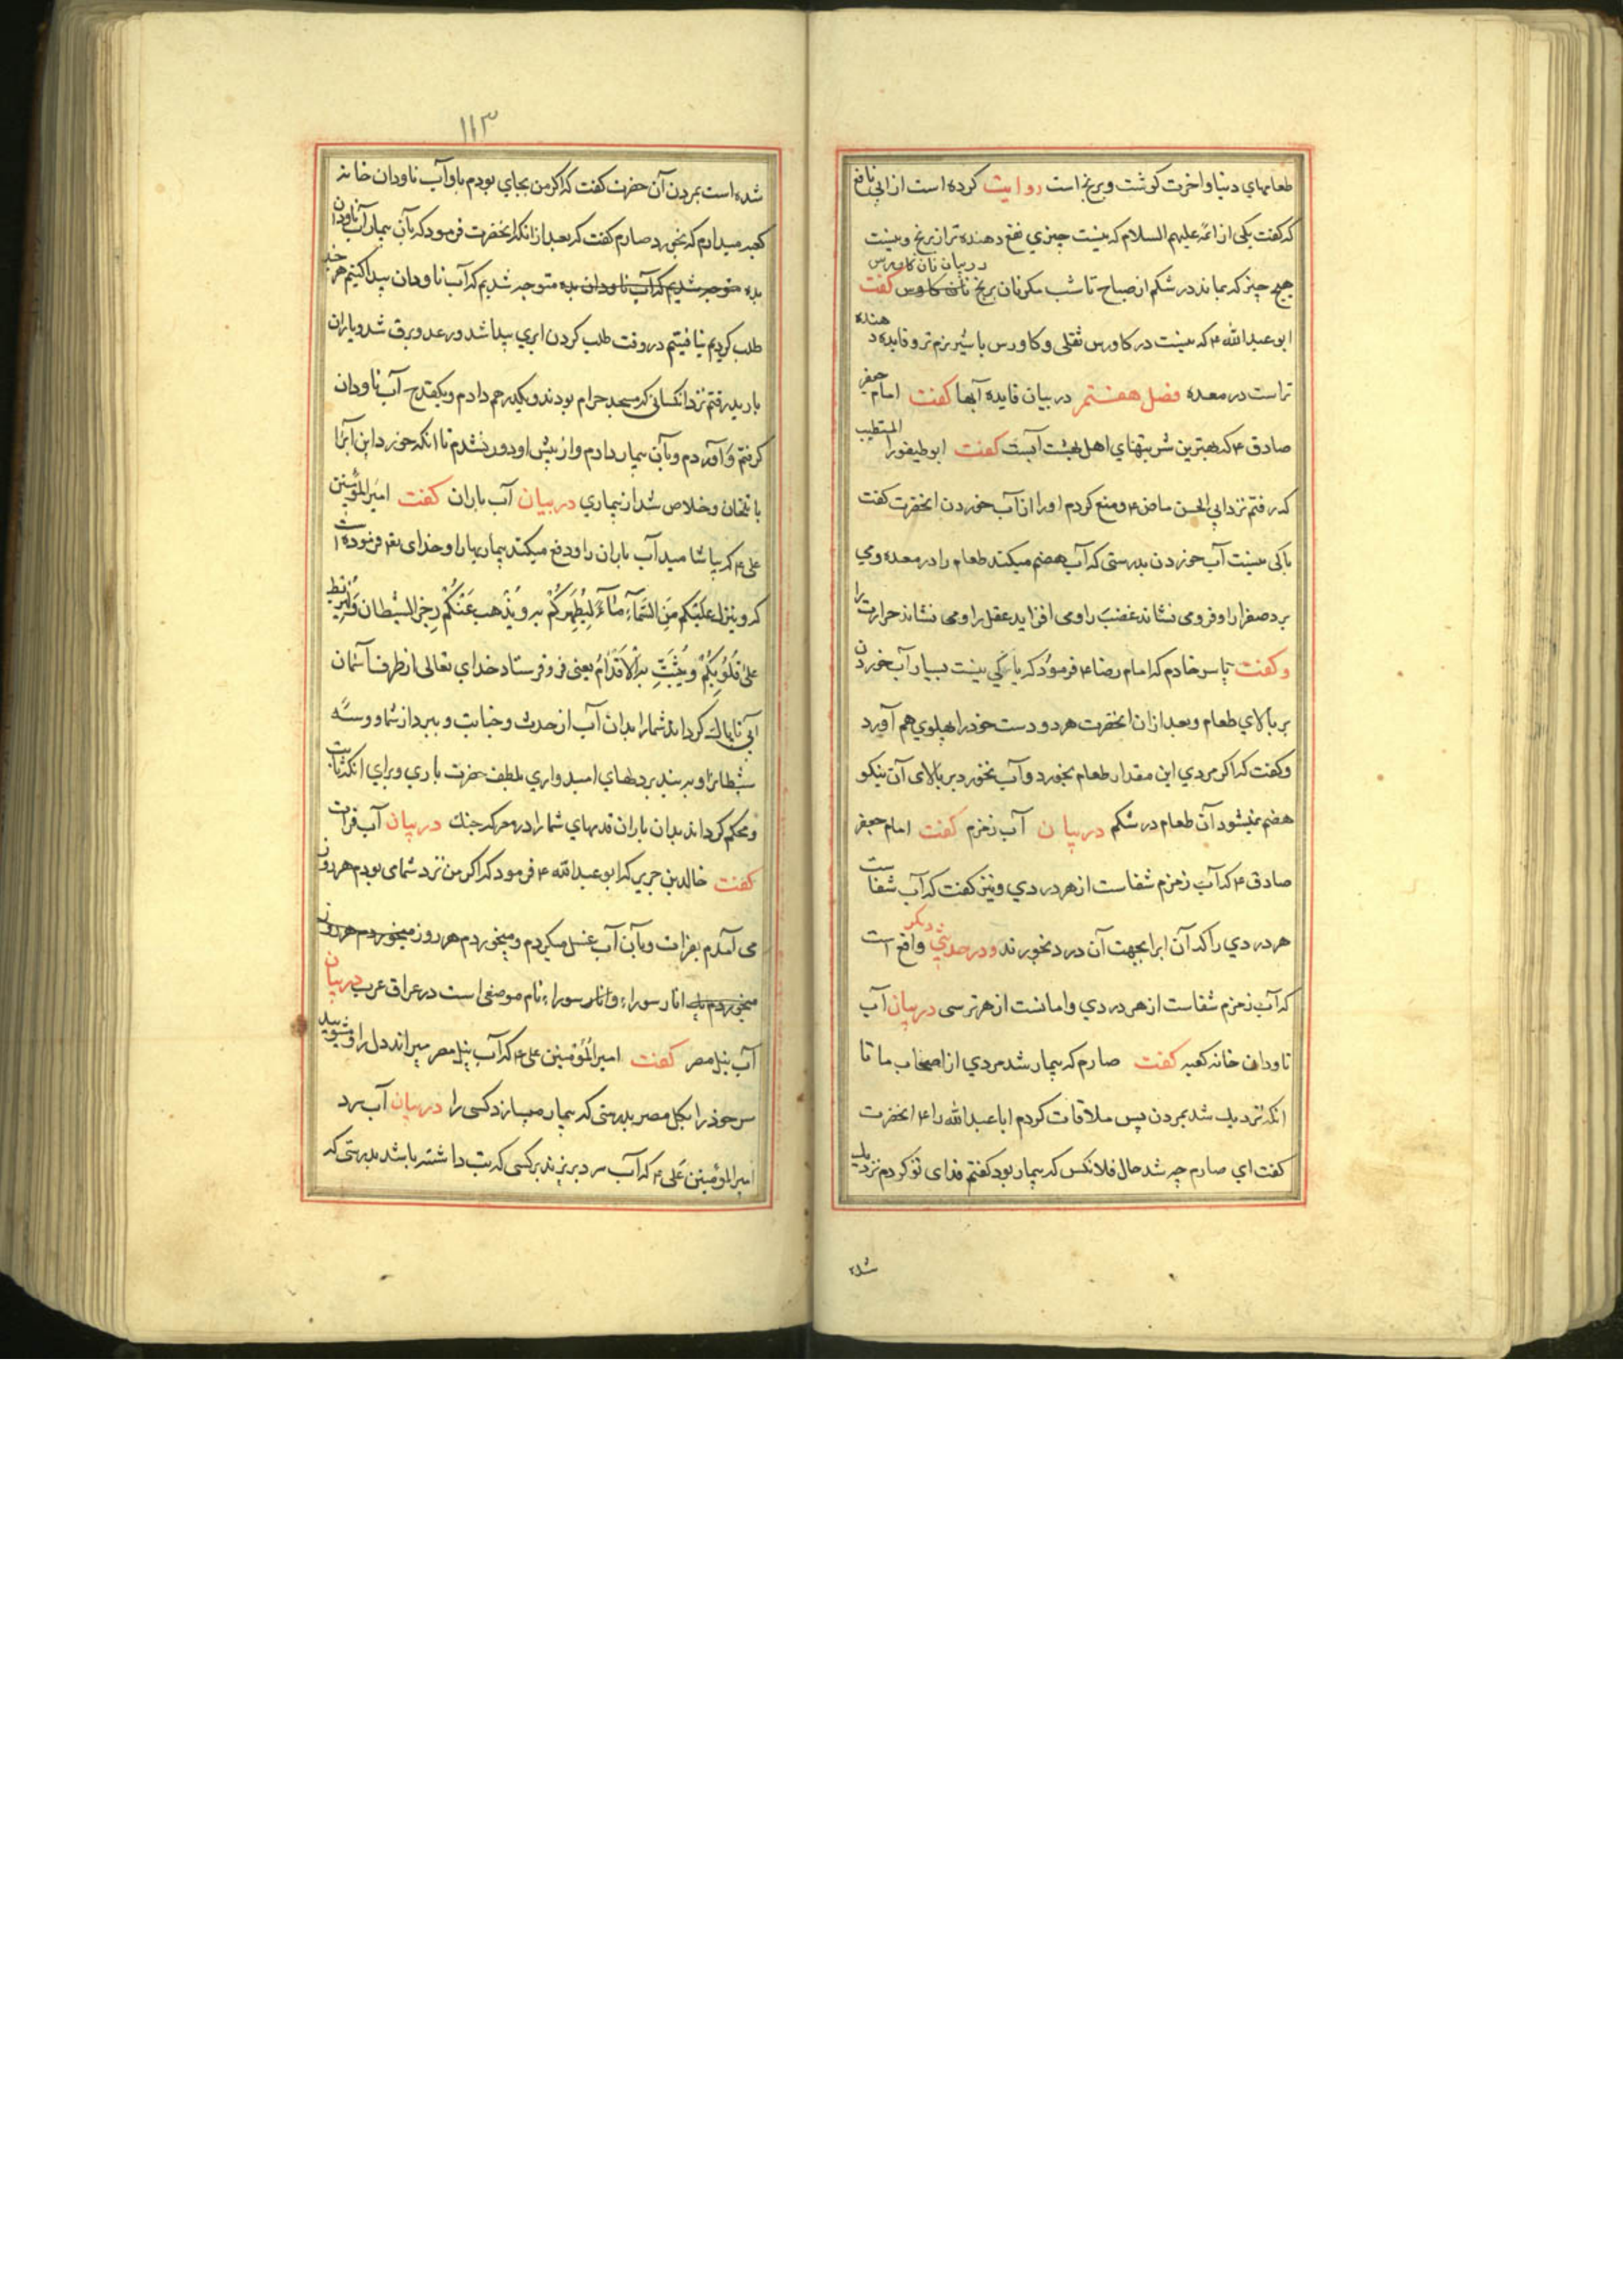 طعامهاي دنيا و اخرت كوشت و برنج است روايت كرده است از ابي نافع
كه كفت يكي از ائمه عليهم السلام كه نيست چيزي نفع دهنده تر از برنج و نيست
در بيان نان كاورس
هيچ چيز كه بماند در شكم از صباح تا شب مكر نان برنج نان كاورس كفت
ابو عبدالله ۴ كه نيست در كاورس ثقلي و كاورس با شير نرم تر و فايده دهنده
تر است در معده فصل هفتم در بيان فايده آبها كفت امام جعفر
صادق ۴ كه بهترين شربتهاي اهل بهشت آبست كفت ابو طيفور المتطبب
كه رفتم نزد ابي الحسن ماضي ۴ و منع كردم او را از آب خوردن انحضرت كفت
باكي نيست آب خوردن بدرستي كه آب هضم ميكند طعام را در معده و مي
برد صفرا را و فرو مي نشاند غضب را و مي افزايد عقل را و مي نشاند حرارت را
و كفت ياسر خادم كه امام رضا ۴ فرمود كه باكي نيست بسيار آب خوردن
بر بالاي طعام و بعد از ان انحضرت هر دو دست خود را بهلوي هم آورد
و كفت كه اكر مردي اين مقدار طعام بخورد و آب نخورد بر بالاي آن نيكو
هضم نميشود آن طعام در شكم در بيان آب زمزم كفت امام جعفر
صادق ۴ كه آب زمزم شفاست از هر دردي و نيز كفت كه آب شفاست
هر دردي را كه آن ابرا بجهت آن درد بخورند و در حديثي ديكر واقع است
كه آب زمزم شفاست از هر دردي و امانست از هر ترسي در بيان آب
ناودان خانه كعبه كفت صارم كه بيمار شد مردي از اصحاب ما تا
انكه نزديك شد بمردن پس ملاقات كردم ابا عبدالله را ۴ انحضرت
كفت اي صارم چه شد حال فلانكس كه بيمار بود كفتم فداي تو كردم نزديك
شده
۱۱۳
شده است بمردن آن حضرت كفت كه اكر من بجاي بودم باو آب ناودان خانه
كعبه ميدادم كه بخورد صارم كفت كه بعد از انكه انحضرت فرمود كه بآن بيمار آب ناودان
بده متوجه شديم كه آب ناودان بده متوجه شديم كه آب ناودان پيدا كنيم هر چند
طلب كرديم نيافتيم در وقت طلب كردن ابري پيدا شد و رعد و برق شد و باران
باريد رفتم نزد انكساني كه مسجد حرام بودند و يكدرهم دادم و يكقدح آب ناودان
كرفتم و آوردم و بآن بيمار دادم و از پيش او دور نشدم تا انكه خورد اين ابرا
و خلاص شد از بيماري در بيان آب باران كفت امير المؤمنين
علي ۴ كه بياشاميد آب باران را و دفع ميكند بيماريها را و خداي تعه فرموده است
كه وينزل عليكم مِنَ السَّمآءِ مآءً لِيُطَهِّرَكُمْ به ويُذْهِبَ عَنْكُمْ رِجزَ الشيطان وَلِيَرْبِطَ
عَلىٰ قُلُوبِكُمْ وَيُثَبِّتَ بهِ الْاَقدامَ يعني فرو فرستاد خداي تعالي از طرف آسمان
آبي تا پاك كرداند شما را بدان آب از حدث و جنابت و ببرد از شما وسوسهٔ
شيطان را و بربندد بردلهاي اميدواري بلطف حضرت باري و براي انكه ثابت
و محكم كرداند بدان باران قدمهاي شما را در معركه جنك در بيان آب فرات
كفت خالد بن جرير كه ابو عبدالله ۴ فرمود كه اكر من نزد شما مي بودم هر روز
مي آمدم بفرات و بآن آب غسل ميكردم و ميخوردم هر روز ميخوردم هر روز
ميخوردم يك انار سوراء و انار سوراء نام موضعي است در عراق عرب در بيان
آب نيل مصر كفت امير المؤمنين علي ۴ كه آب نيل مصر ميراند دل را و مشوييد
سر خود را بكل مصر بدرستي كه بيمار ميسازد كسي را در بيان آب سرد
امير المؤمنين علي ۴ كه آب سرد بريزند بر كسي كه تب داشته باشد بدرستي كه